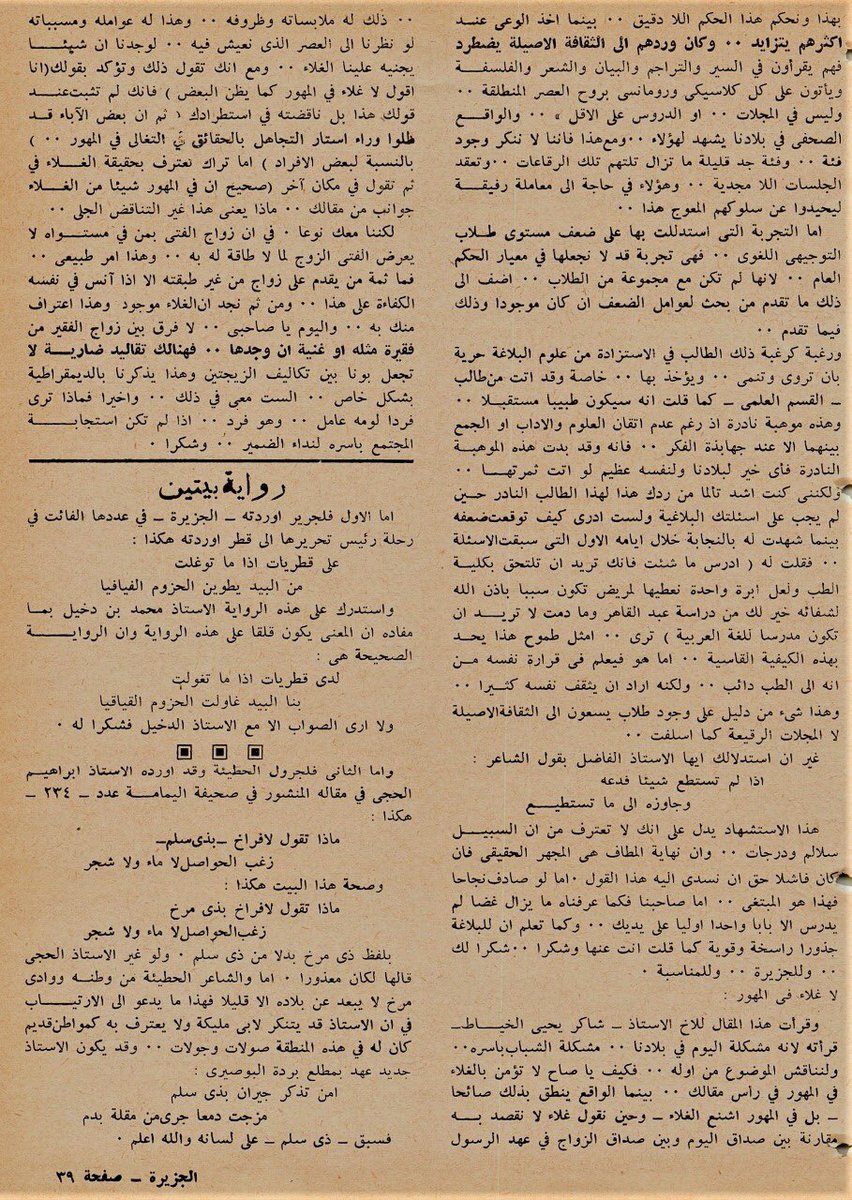 بهذا ونحكم هذا الحكم اللا دقيق ٠٠ بينما اخذ الوعى عند
اكثرهم يتزايد ٠٠ وكان وردهم الى الثقافة الاصيلة يضطرد
فهم يقرأون في السير والتراجم والبيان والشعر والفلسفة
ويأتون على كل كلاسيكى ورومانسى بروح العصر المنطلقة ٠٠
وليس في المجلات ٠٠ او الدروس على الاقل » ٠٠ والواقع
الصحفى في بلادنا يشهد لهؤلاء ٠٠ومع‌هذا فاننا لا ننكر وجود
فئة ٠٠ وفئة جد قليلة ما تزال تلتهم تلك الرقاعات ٠٠وتعقد
الجلسات اللا مجدية ٠٠ وهؤلاء في حاجة الى معاملة رفيقة
ليحيدوا عن سلوكهم المعوج هذا ٠٠
اما التجربة التى استدللت بها على ضعف مستوى طلاب
التوجيهى اللغوى ٠٠ فهى تجربة قد لا نجعلها في معيار الحكم
العام ٠٠ لانها لم تكن مع مجموعة من الطلاب ٠٠ اضف الى
ذلك ما تقدم من بحث لعوامل الضعف ان كان موجودا وذلك
فيما تقدم ٠٠
ورغبة كرغبة ذلك الطالب في الاستزادة من علوم البلاغة حرية
بان تروى وتنمى ٠٠ ويؤخذ بها ٠٠ خاصة وقد اتت من‌طالب
ـ القسم العلمى ـ كما قلت انه سيكون طبيبا مستقبلا ٠٠
وهذه موهبة نادرة اذ رغم عدم اتقان العلوم والاداب او الجمع
بينهما الا عند جهابذة الفكر ٠٠ فانه وقد بدت هذه الموهبة
النادرة فأى خير لبلادنا ولنفسه عظيم لو اتت ثمرتها ٠٠
ولكننى كنت اشد تألما من ردك هذا لهذا الطالب النادر حين
لم يجب على اسئلتك البلاغية ولست ادرى كيف توقعت‌ضعفه
بينما شهدت له بالنجابة خلال ايامه الاول التى سبقت‌الاسئلة
٠٠ فقلت له ( ادرس ما شئت فانك تريد ان تلتحق بكلية
الطب ولعل ابرة واحدة نعطيها لمريض تكون سببا باذن الله
لشفائه خير لك من دراسة عبد القاهر وما دمت لا تريد ان
تكون مدرسا للغة العربية ) ترى ٠٠ امثل طموح هذا يحد
بهذه الكيفية القاسية ٠٠ اما هو فيعلم فى قرارة نفسه من
انه الى الطب دائب ٠٠ ولكنه اراد ان يثقف نفسه كثيرا ٠٠
وهذا شىء من دليل على وجود طلاب يسعون الى الثقافةالاصيلة
لا المجلات الرقيعة كما اسلفت ٠٠
غير ان استدلالك ايها الاستاذ الفاضل بقول الشاعر :
اذا لم تستطع شيئا فدعه
وجاوزه الى ما تستطيع
هذا الاستشهاد يدل على انك لا تعترف من ان السبيل
سلالم ودرجات ٠٠ وان نهاية المطاف هى المجهر الحقيقى فان
كان فاشلا حق ان نسدى اليه هذا القول ٠اما لو صادف‌نجاحا
فهذا هو المبتغى ٠٠ اما صاحبنا فكما عرفناه ما يزال غضا لم
يدرس الا بابا واحدا اوليا على يديك ٠٠ وكما تعلم ان للبلاغة
جذورا راسخة وقوية كما قلت انت عنها وشكرا ٠٠شكرا لك
٠٠ وللجزيرة ٠٠ وللمناسبة ٠
لا غلاء فى المهور :
وقرأت هذا المقال للاخ الاستاذ ـ شاكر يحيى الخياط‌ـ
قرأته لانه مشكلة اليوم في بلادنا ٠٠ مشكلة الشباب‌باسره٠٠
ولنناقش الموضوع من اوله ٠٠ فكيف يا صاح لا تؤمن بالغلاء
في المهور في رأس مقالك ٠٠ بينما الواقع ينطق بذلك صائحا
ـ بل في المهور اشنع الغلاء ـ وحين نقول غلاء لا نقصد به
مقارنة بين صداق اليوم وبين صداق الزواج في عهد الرسول
٠٠ ذلك له ملابساته وظروفه ٠٠ وهذا له عوامله ومسبباته
لو نظرنا الى العصر الذى نعيش فيه ٠٠ لوجدنا ان شيئا
يجنيه علينا الغلاء ٠٠ ومع انك تقول ذلك وتؤكد بقولك(انا
اقول لا غلاء في المهور كما يظن البعض ) فانك لم تثبت‌عند
قولك هذا بل ناقضته في استطرادك ( ثم ان بعض الآباء قد
ظلوا وراء استار التجاهل بالحقائق في التغالى في المهور ٠٠ )
بالنسبة لبعض الافراد ) اما تراك تعترف بحقيقة الغلاء في
ثم تقول في مكان آخر (صحيح ان في المهور شيئا من الغلاء
جوانب من مقالك ٠٠ ماذا يعنى هذا غير التناقض الجلى ٠٠
لكننا معك نوعا ٠ في ان زواج الفتى بمن في مستواه لا
يعرض الفتى الزوج لما لا طاقة له به ٠٠ وهذا امر طبيعى ٠٠
فما ثمة من يقدم على زواج من غير طبقته الا اذا آنس في نفسه
الكفاءة على هذا ٠٠ ومن ثم نجد ان‌الغلاء موجود وهذا اعتراف
منك به ٠٠ واليوم يا صاحبى ٠٠ لا فرق بين زواج الفقير من
فقيرة مثله او غنية ان وجدها ٠٠ فهنالك تقاليد ضارية لا
تجعل بونا بين تكاليف الزيجتين وهذا يذكرنا بالديمقراطية
بشكل خاص ٠٠ الست معى في ذلك ٠٠ واخيرا فماذا ترى
فردا لومه عامل ٠٠ وهو فرد ٠٠ اذا لم تكن استجابة
المجتمع باسره لنداء الضمير ٠٠ وشكرا ٠
رواية بيتين
اما الاول فلجرير اوردته ـ الجزيرة ـ في عددها الفائت في
رحلة رئيس تحريرها الى قطر اوردته هكذا :
على قطريات اذا ما توغلت
من البيد يطوين الحزوم الفيافيا
واستدرك على هذه الرواية الاستاذ محمد بن دخيل بما
مفاده ان المعنى يكون قلقا على هذه الرواية وان الرواية
الصحيحة هى :
لدى قطريات اذا ما تغولت
بنا البيد غاولت الحزوم القياقيا
ولا ارى الصواب الا مع الاستاذ الدخيل فشكرا له ٠
واما الثانى فلجرول الحطيئة وقد اورده الاستاذ ابراهيم
الحجى في مقاله المنشور في صحيفة اليمامة عدد ـ ٢٣٤ ـ
هكذا :
ماذا تقول لافراخ ـبذى‌سلم‌ـ
زغب الحواصل‌لا ماء ولا شجر
وصحة هذا البيت هكذا :
ماذا تقول لافراخ بذى مرخ
زغب‌الحواصل‌لا ماء ولا شجر
بلفظ ذى مرخ بدلا من ذى سلم ٠ ولو غير الاستاذ الحجى
قالها لكان معذورا ٠ اما والشاعر الحطيئة من وطنه ووادى
مرخ لا يبعد عن بلاده الا قليلا فهذا ما يدعو الى الارتياب
في ان الاستاذ قد يتنكر لابى مليكة ولا يعترف به كمواطن‌قديم
كان له في هذه المنطقة صولات وجولات ٠٠ وقد يكون الاستاذ
جديد عهد بمطلع بردة البوصيرى :
امن تذكر جيران بذى سلم
مزجت دمعا جرى‌من مقلة بدم
فسبق ـ ذى سلم ـ على لسانه والله اعلم ٠
الجزيرة ـ صفحة ٣٩